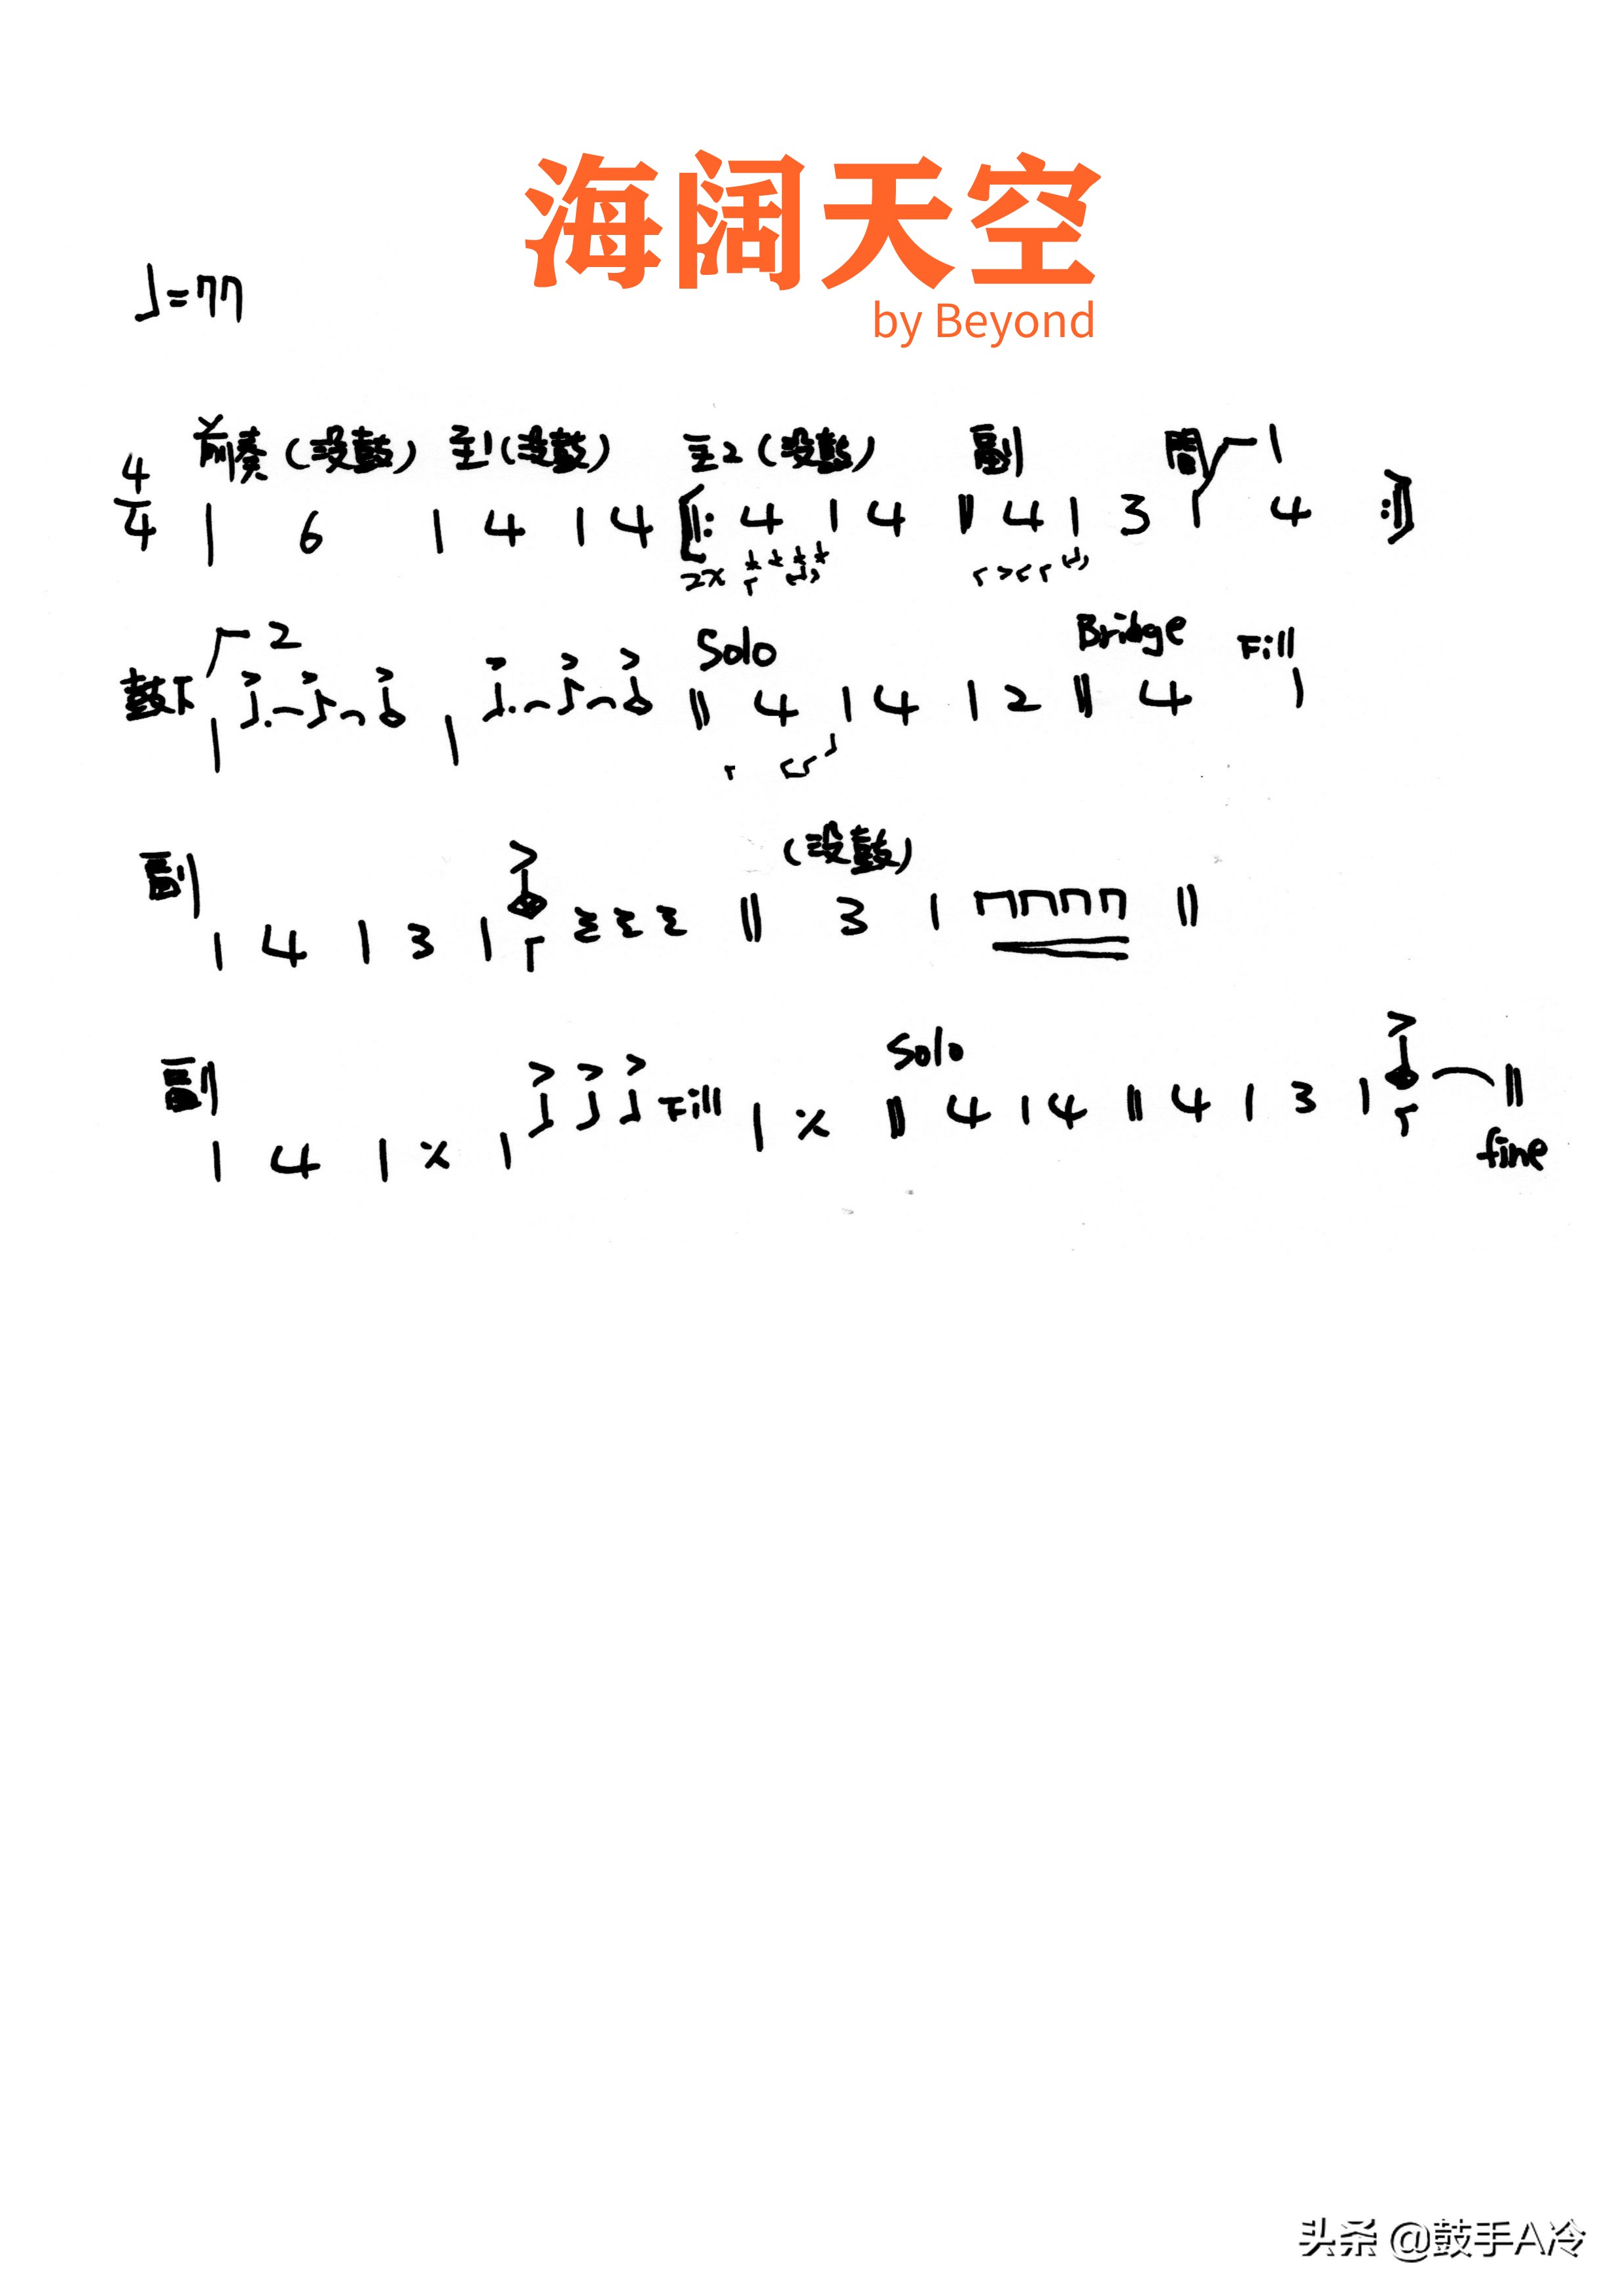 海阔天空
by Beyond
♩=77
前奏(没鼓) 主1(没鼓) 主2(没鼓) 副 間 1
4/4 | 6 | 4 | 4 ‖: 4 | 4 ‖ 4 | 3 | 4 :‖
2x
2 Solo Bridge Fill
鼓下 | | ‖ 4 | 4 | 2 ‖ 4 |
(没鼓)
副 | 4 | 3 | ‖ 3 | ‖
Solo
副 | 4 | % | Fill | % ‖ 4 | 4 ‖ 4 | 3 | ‖
fine
头条 @鼓手A冷